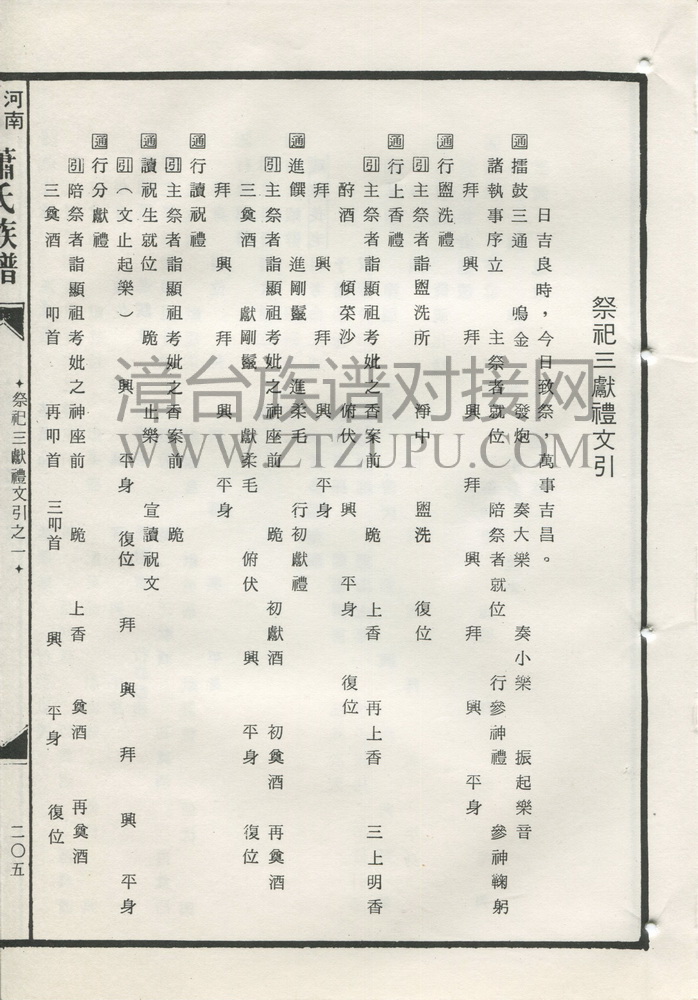 祭祀三獻禮文引
日吉良時，今日致祭，萬事吉昌。
通擂鼓三通　鳴金　發炮　奏大樂　奏小樂　振起樂音
諸執事序立　主祭者就位　陪祭者就位　行參神禮　參神鞠躬
拜　興　拜　興　拜　興　拜　興　平身
通行盥洗禮
引主祭者詣盥洗所　淨巾　盥洗　復位
通行上香禮
引主祭者詣顯祖考妣之香案前　跪　上香　再上香　三上明香
酹酒　傾茱沙　俯伏　興　平身　復位
拜　興　拜　興　平身
通進饌　進剛鬣　進柔毛　行初獻禮
引主祭者詣顯祖考妣之神座前　跪　初獻酒　初奠酒　再奠酒
三奠酒　獻剛鬣　獻柔毛　俯伏　興　平身　復位
拜　興　拜　興　平身
通行讀祝禮
引主祭者詣顯祖考妣之香案前　跪
通讀祝生就位　跪　止樂　宣讀祝文
引（文止起樂）　興　平身　復位　拜　興　拜　興　平身
通行分獻禮
引陪祭者詣顯祖考妣之神座前　跪　上香　奠酒　再奠酒
三奠酒　叩首　再叩首　三叩首　興　平身　復位
河南　蕭氏族譜
✦祭祀三獻禮文引之一✦
二〇五
漳台族谱对接网
WWW.ZTZUPU.COM